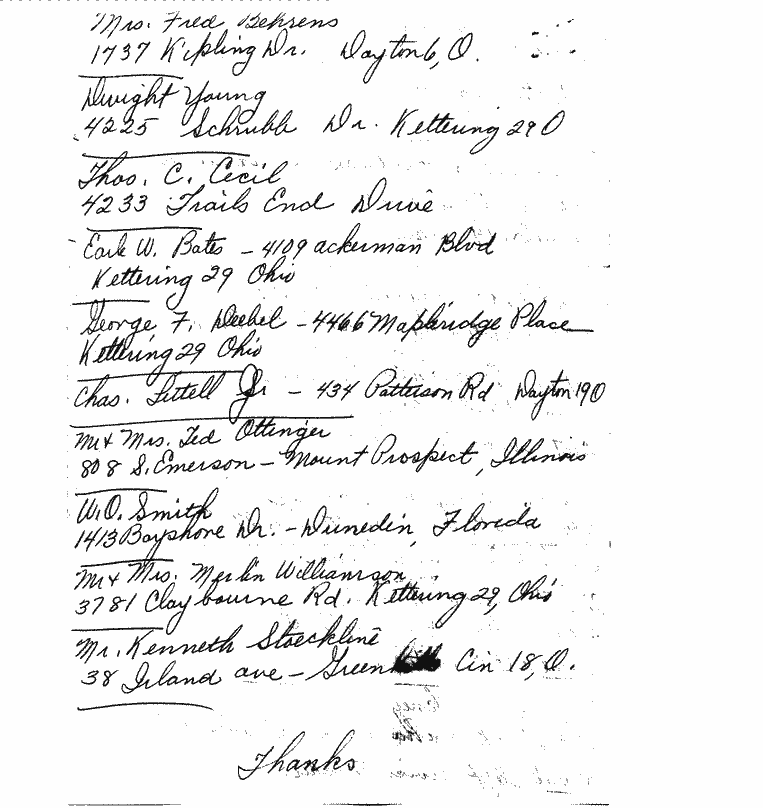 Mrs. Fred Behrens
1737 Kipling Dr. Dayton 6, O.
Dwight Young
4225 Schrubb Dr. Kettering 29 O
Thos. C. Cecil
4233 Trails End Drive
Earl W. Bates - 4109 ackerman Blvd
Kettering 29 Ohio
George F. Deebel - 4466 Mapleridge Place
Kettering 29 Ohio
Chas. Littell Jr - 434 Patterson Rd Dayton 19 O
Mr & Mrs. Ted Ottinger
808 S. Emerson - Mount Prospect, Illinois
W.O. Smith
1413 Bayshore Dr. - Dunedin, Florida
Mr & Mrs. Merlin Williamson
3781 Claybourne Rd. Kettering 29, Ohio
Mr. Kenneth Stoeckline
38 Ireland ave - Cin 18, O.
Thanks